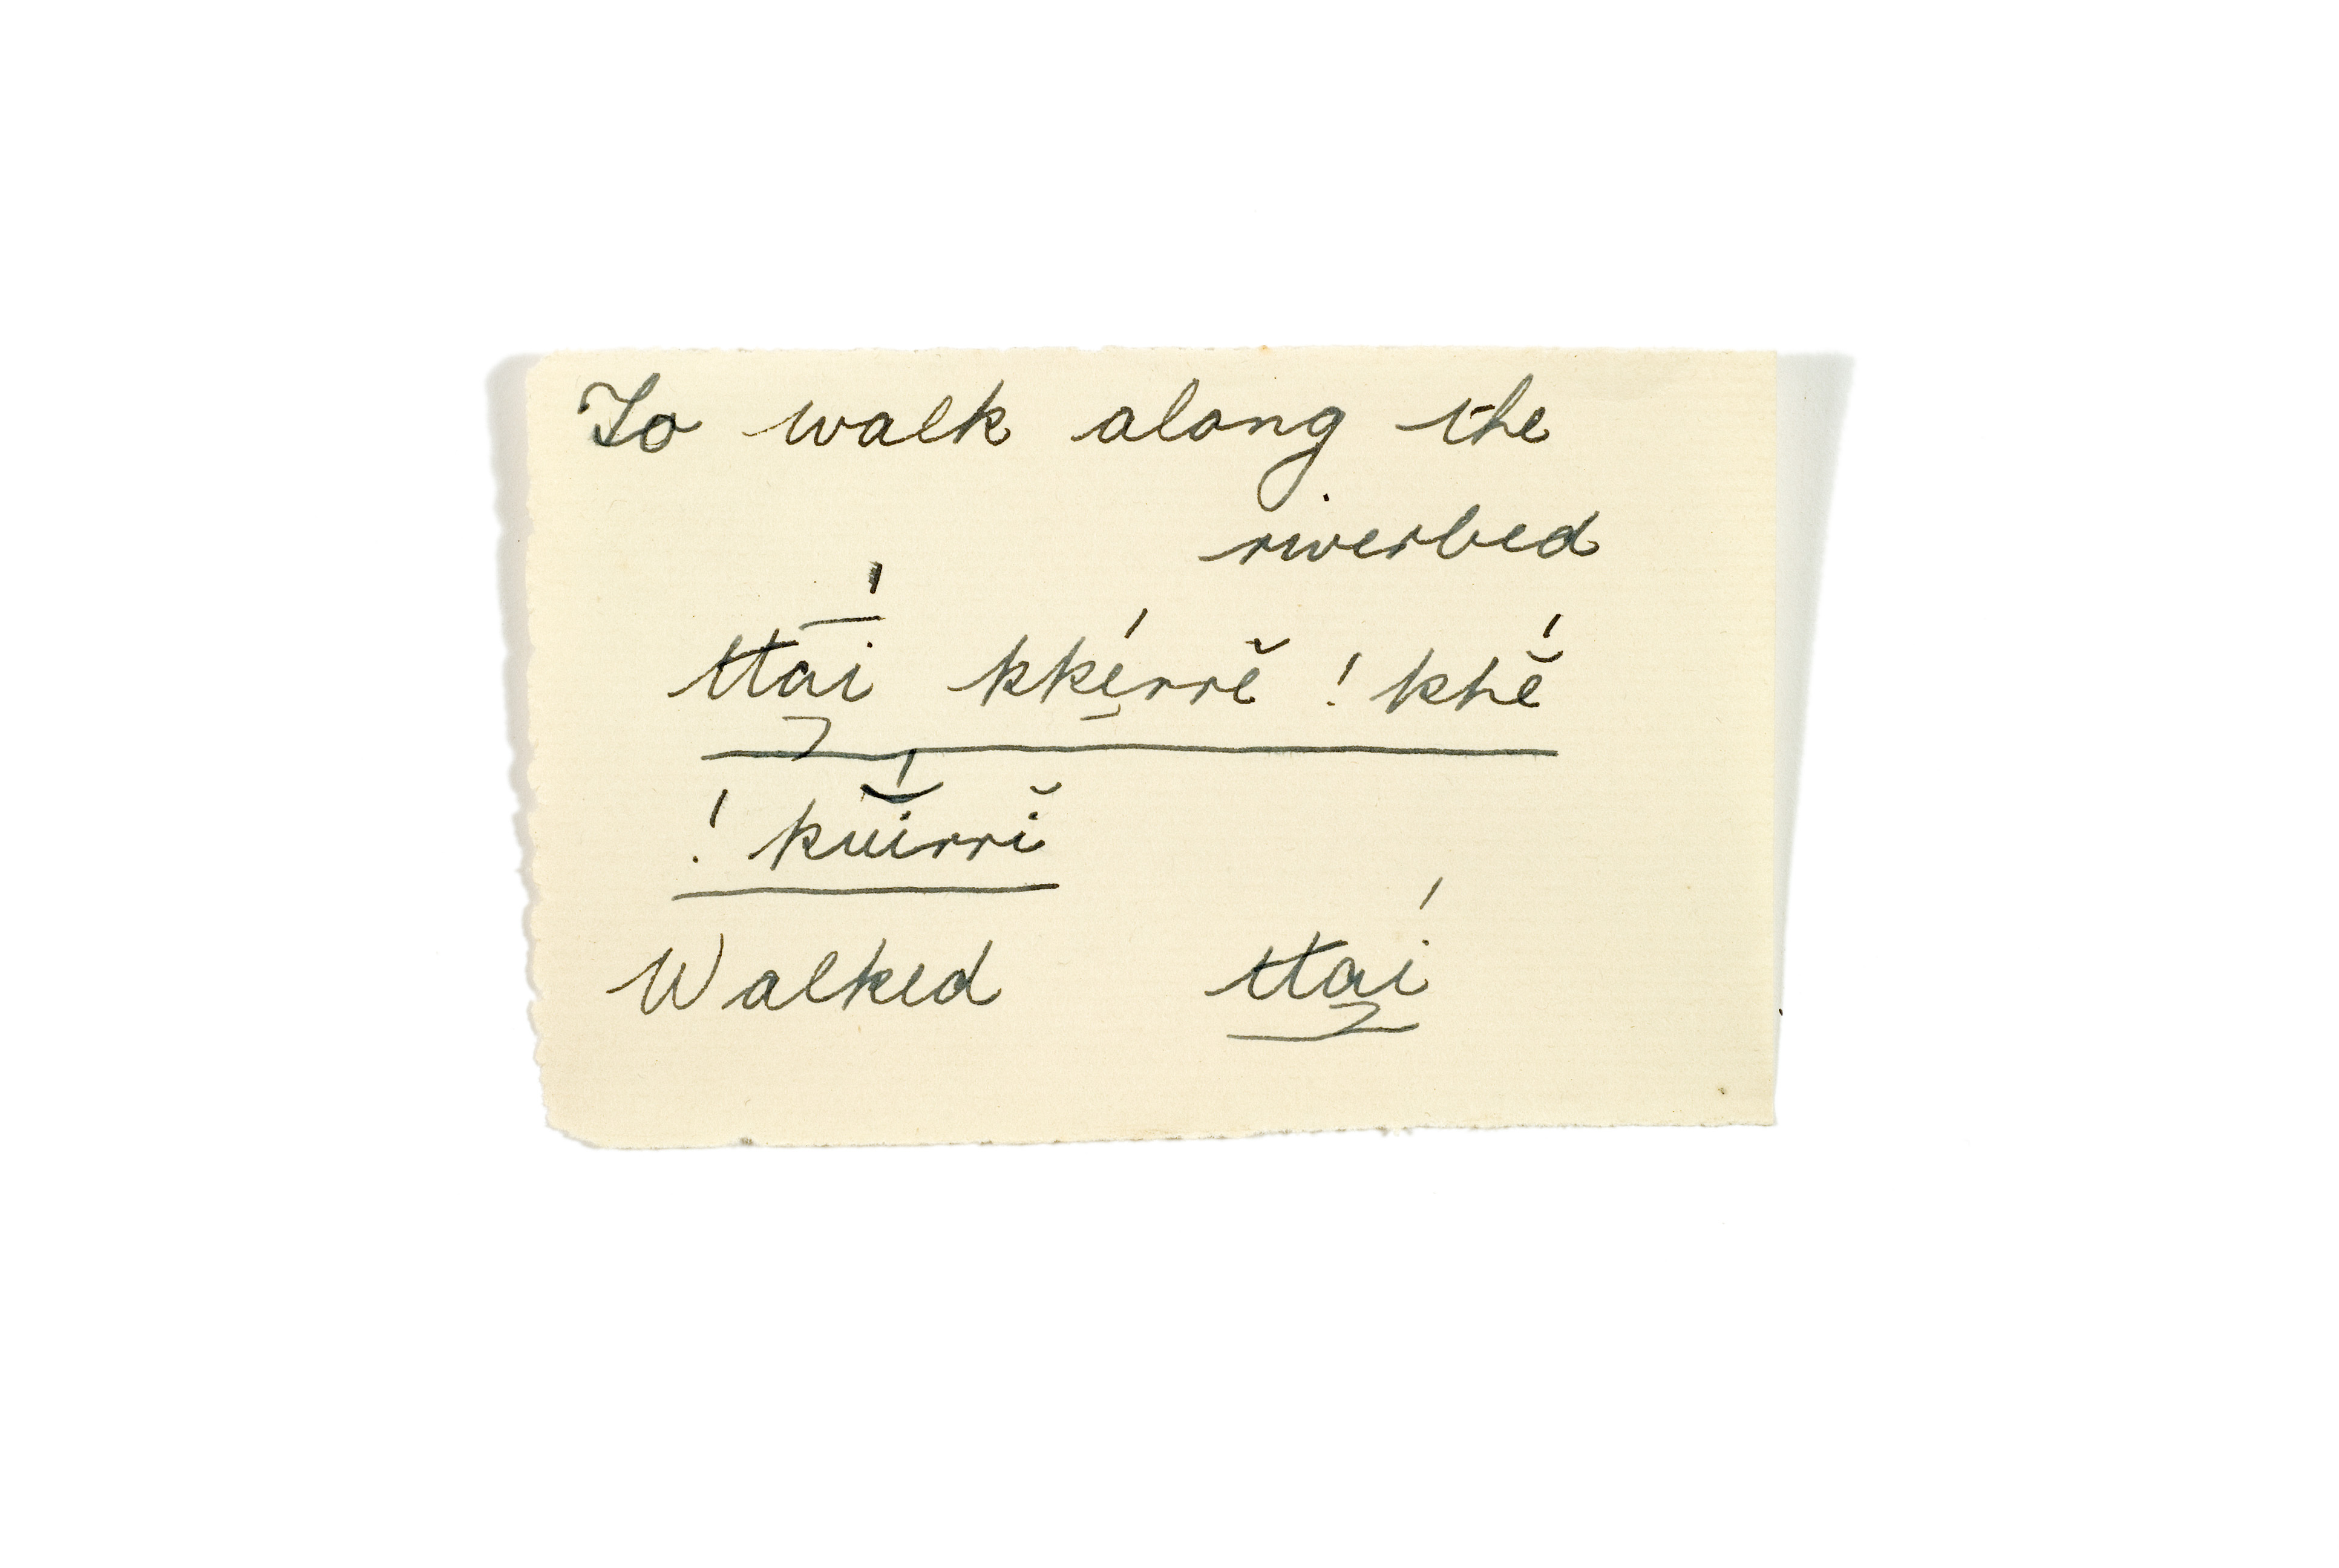 To walk along the
riverbed
ttā́i kkérrĕ ! khĕ́
! kŭ́irrĭ
Walked ttaí